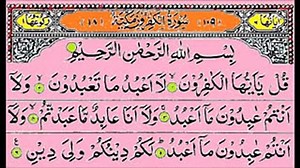 سُوْرَةُ الْكٰفِرُوْنَ مَكِّيَّةٌ
بِسْمِ اللهِ الرَّحْمٰنِ الرَّحِيْمِ
قُلْ يٰۤاَيُّهَا الْكٰفِرُوْنَ لَاۤ اَعْبُدُ مَا تَعْبُدُوْنَ وَلَاۤ
اَنْتُمْ عٰبِدُوْنَ مَاۤ اَعْبُدُ وَلَاۤ اَنَا عَابِدٌ مَّا عَبَدْتُّمْ وَلَاۤ
اَنْتُمْ عٰبِدُوْنَ مَاۤ اَعْبُدُ لَكُمْ دِيْنُكُمْ وَلِيَ دِيْنِ